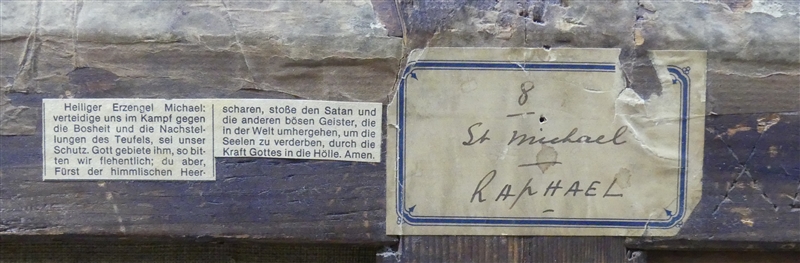 Heiliger Erzengel Michael:
verteidige uns im Kampf gegen
die Bosheit und die Nachstel-
lungen des Teufels, sei unser
Schutz. Gott gebiete ihm, so bit-
ten wir flehentlich; du aber,
Fürst der himmlischen Heer-
scharen, stoße den Satan und
die anderen bösen Geister, die
in der Welt umhergehen, um die
Seelen zu verderben, durch die
Kraft Gottes in die Hölle. Amen.
8
St Michael
RAPHAEL